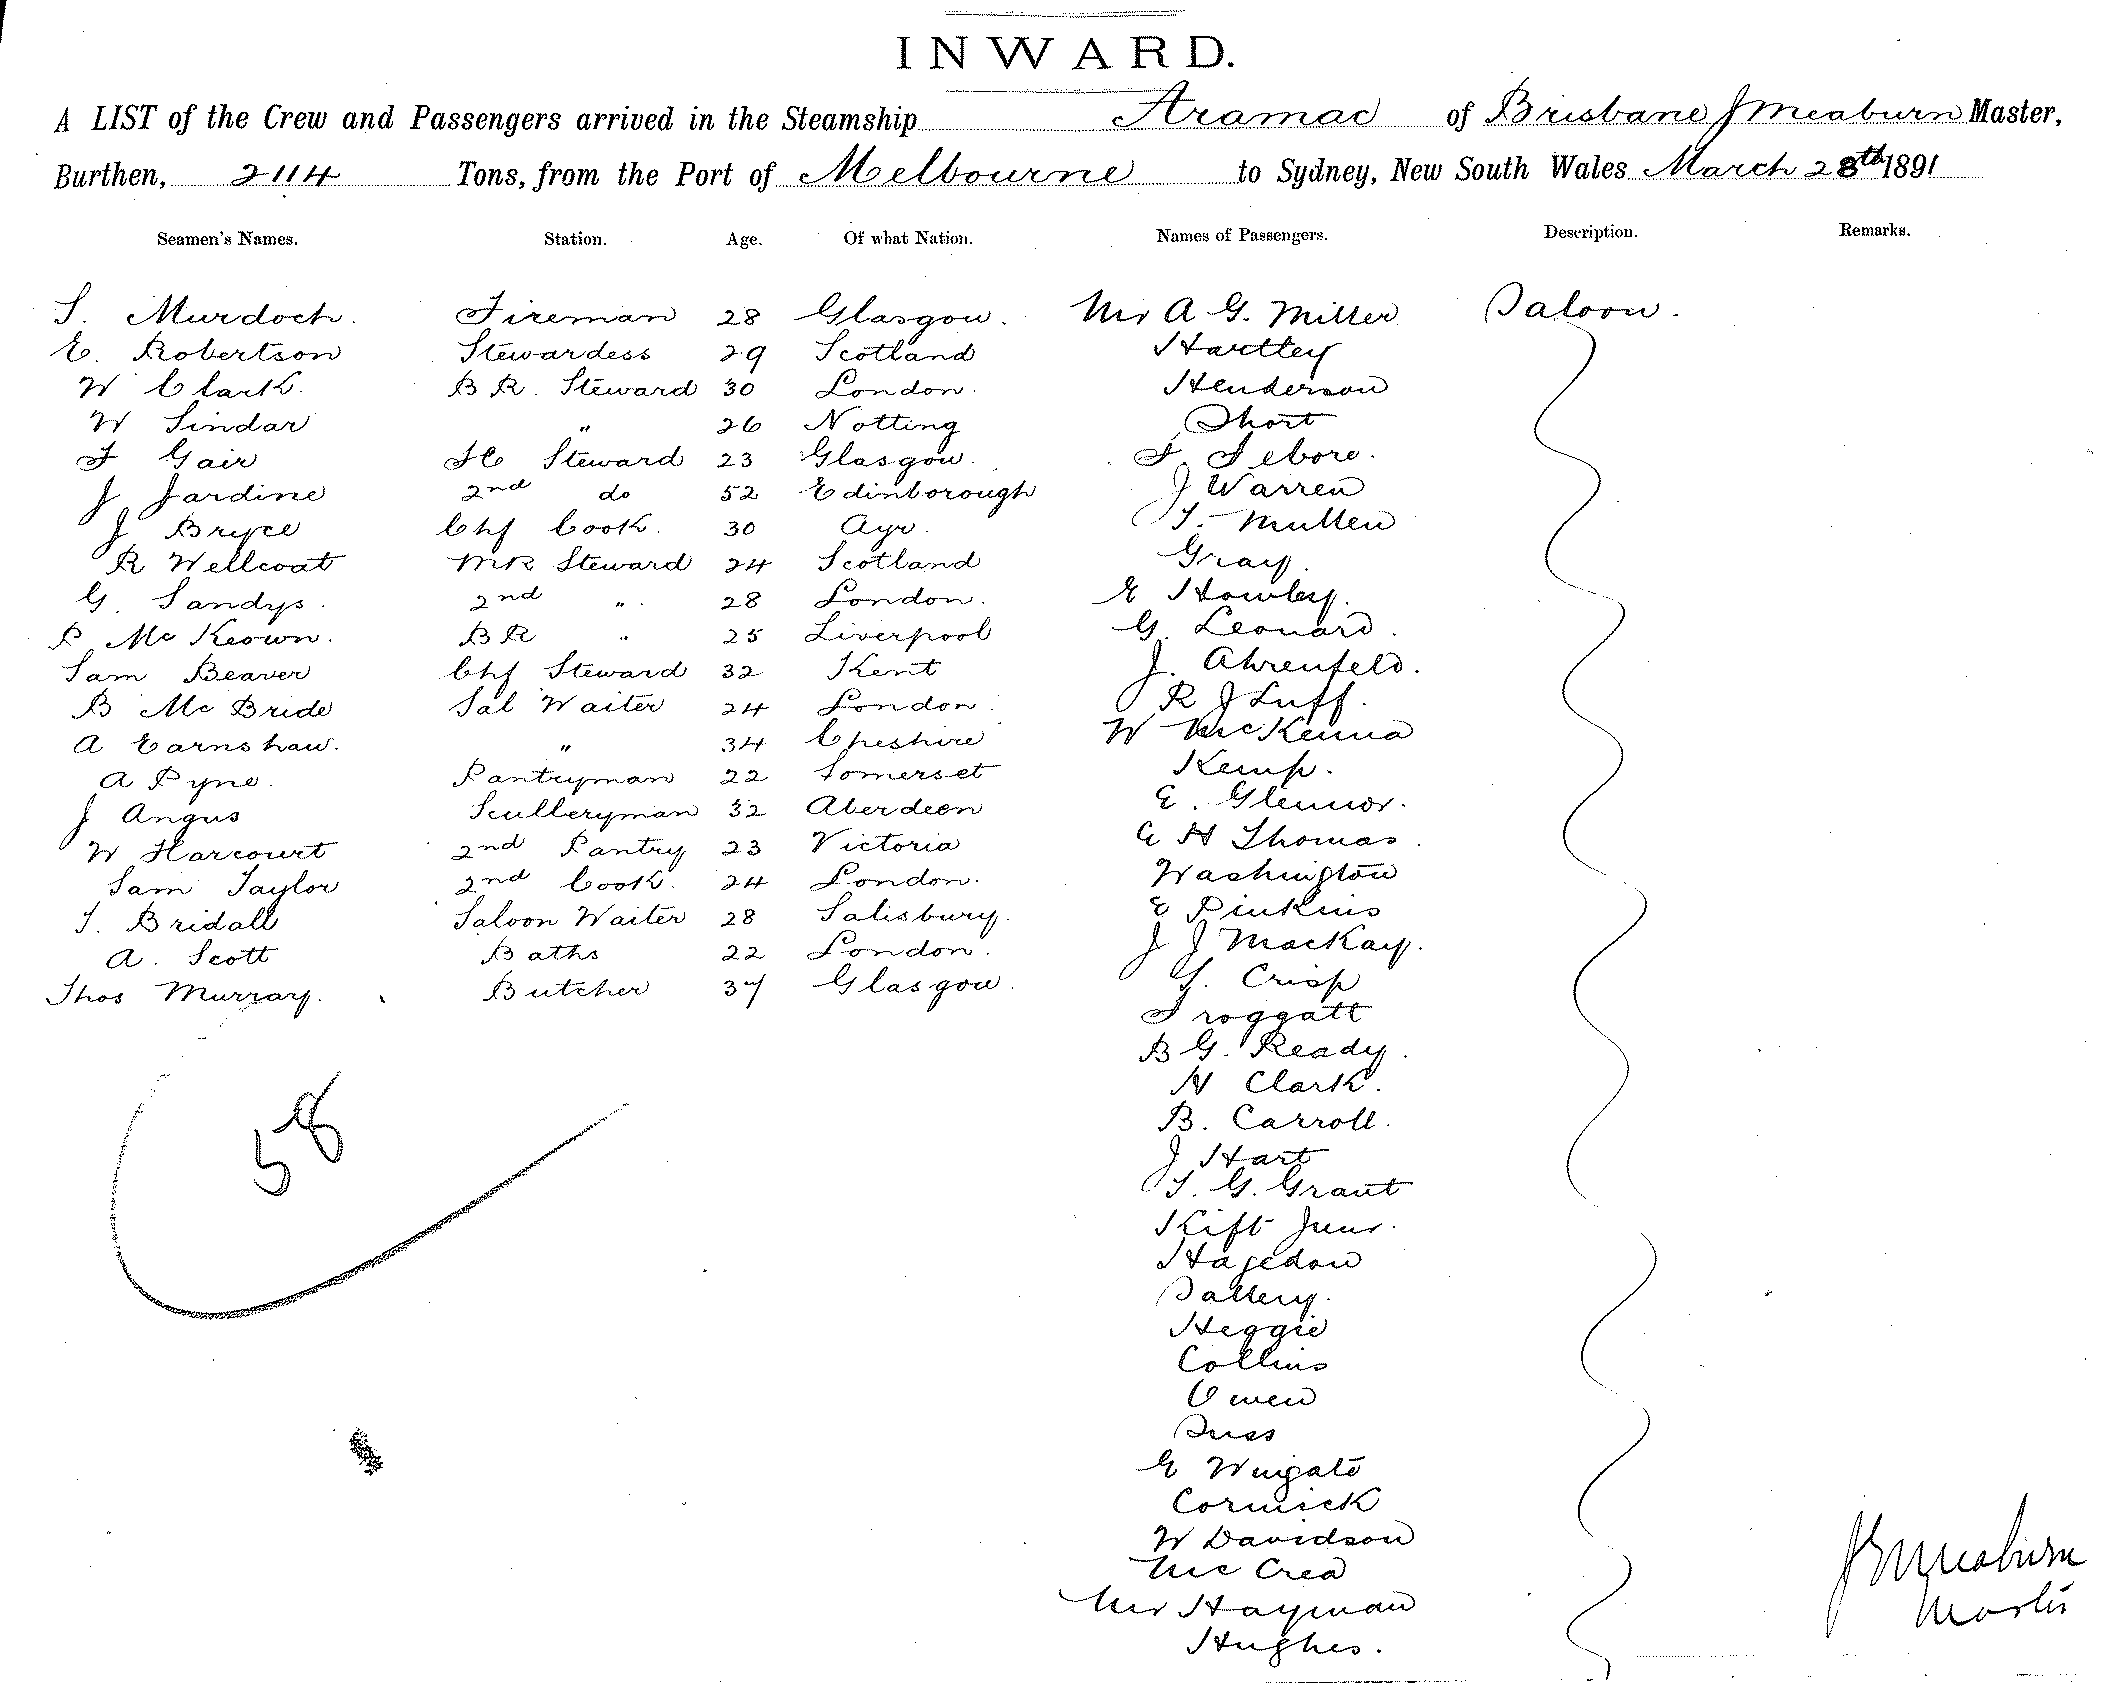 INWARD.
A LIST of the Crew and Passengers arrived in the Steamship Aramac of Brisbane J Meaburn Master,
Burthen, 2114 Tons, from the Port of Melbourne to Sydney, New South Wales March 28th 1891
Seamen's Names. Station. Age. Of what Nation. Names of Passengers. Description. Remarks.
S. Murdoch. Fireman 28 Glasgow. Mr A G. Miller Saloon.
E. Robertson Stewardess 29 Scotland Hartley
W Clark. B R. Steward 30 London. Henderson
W Sindar " 26 Notting Short
F Gair FC Steward 23 Glasgow. F.
J Jardine 2nd do 52 Edinborough J Warren
J Bryce Chf Cook. 30 Ayr. T. Mullen
R Wellcoat MR Steward 24 Scotland Gray.
G. Sandys. 2nd " 28 London. E Howley.
P McKeown. BR " 25 Liverpool G. Leonard.
Sam Beaver Chf Steward 32 Kent J. Ahrenfeld.
B McBride Sal Waiter 24 London. R J Luff.
A Earnshaw. " 34 Cheshire W McKenna
A Pyne. Pantryman 22 Somerset Kemp.
J Angus Sculleryman 32 Aberdeen E. Glennor.
W Harcourt 2nd Pantry 23 Victoria E H Thomas.
Sam Taylor 2nd Cook. 24 London. Washington
T. Bridall Saloon Waiter 28 Salisbury. E Pinkins
A. Scott Baths 22 London. J J MacKay.
Thos Murray. Butcher 37 Glasgow. G. Crisp
Froggatt
B G. Ready.
H Clark.
B. Carroll.
J Hart
T. G. Grant
Kift Junr.
Hagedon
58
Heggie
Collins
Owen
E Wingate
Cormick
W Davidson
McCrea
Mr Hayman
Hughes.
J B Meaburn
Master